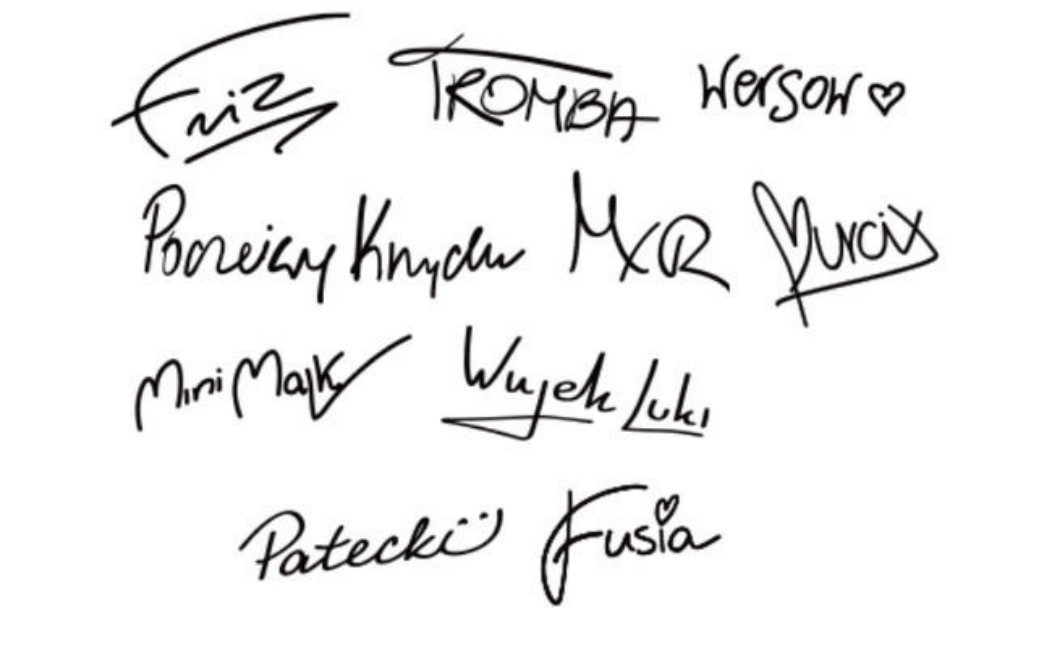 Friz TROMBA Wersow♡
Poczciwy Krzychu MXR Murcix
Mini Majk Wujek Luki
Patecki Fusia